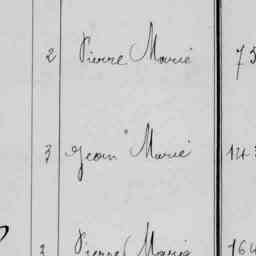 2 Pierre Marié 75
3 Jean Marié 143
2 Pierre Marie 164